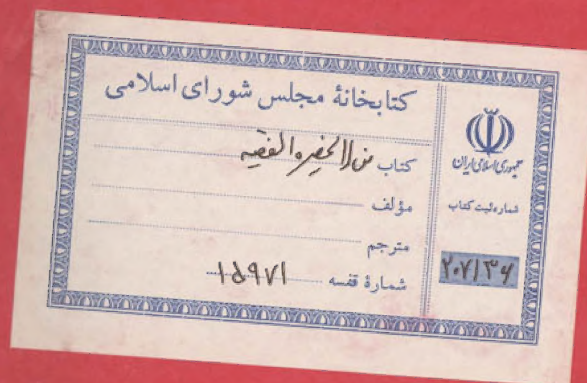 کتابخانهٔ مجلس شورای اسلامی
کتاب من لا یحضره الفقیه
مؤلف
مترجم
شمارهٔ قفسه ۱۵۹۷۱
جمهوری اسلامی ایران
شماره ثبت کتاب
۲۰۷۱۳۶